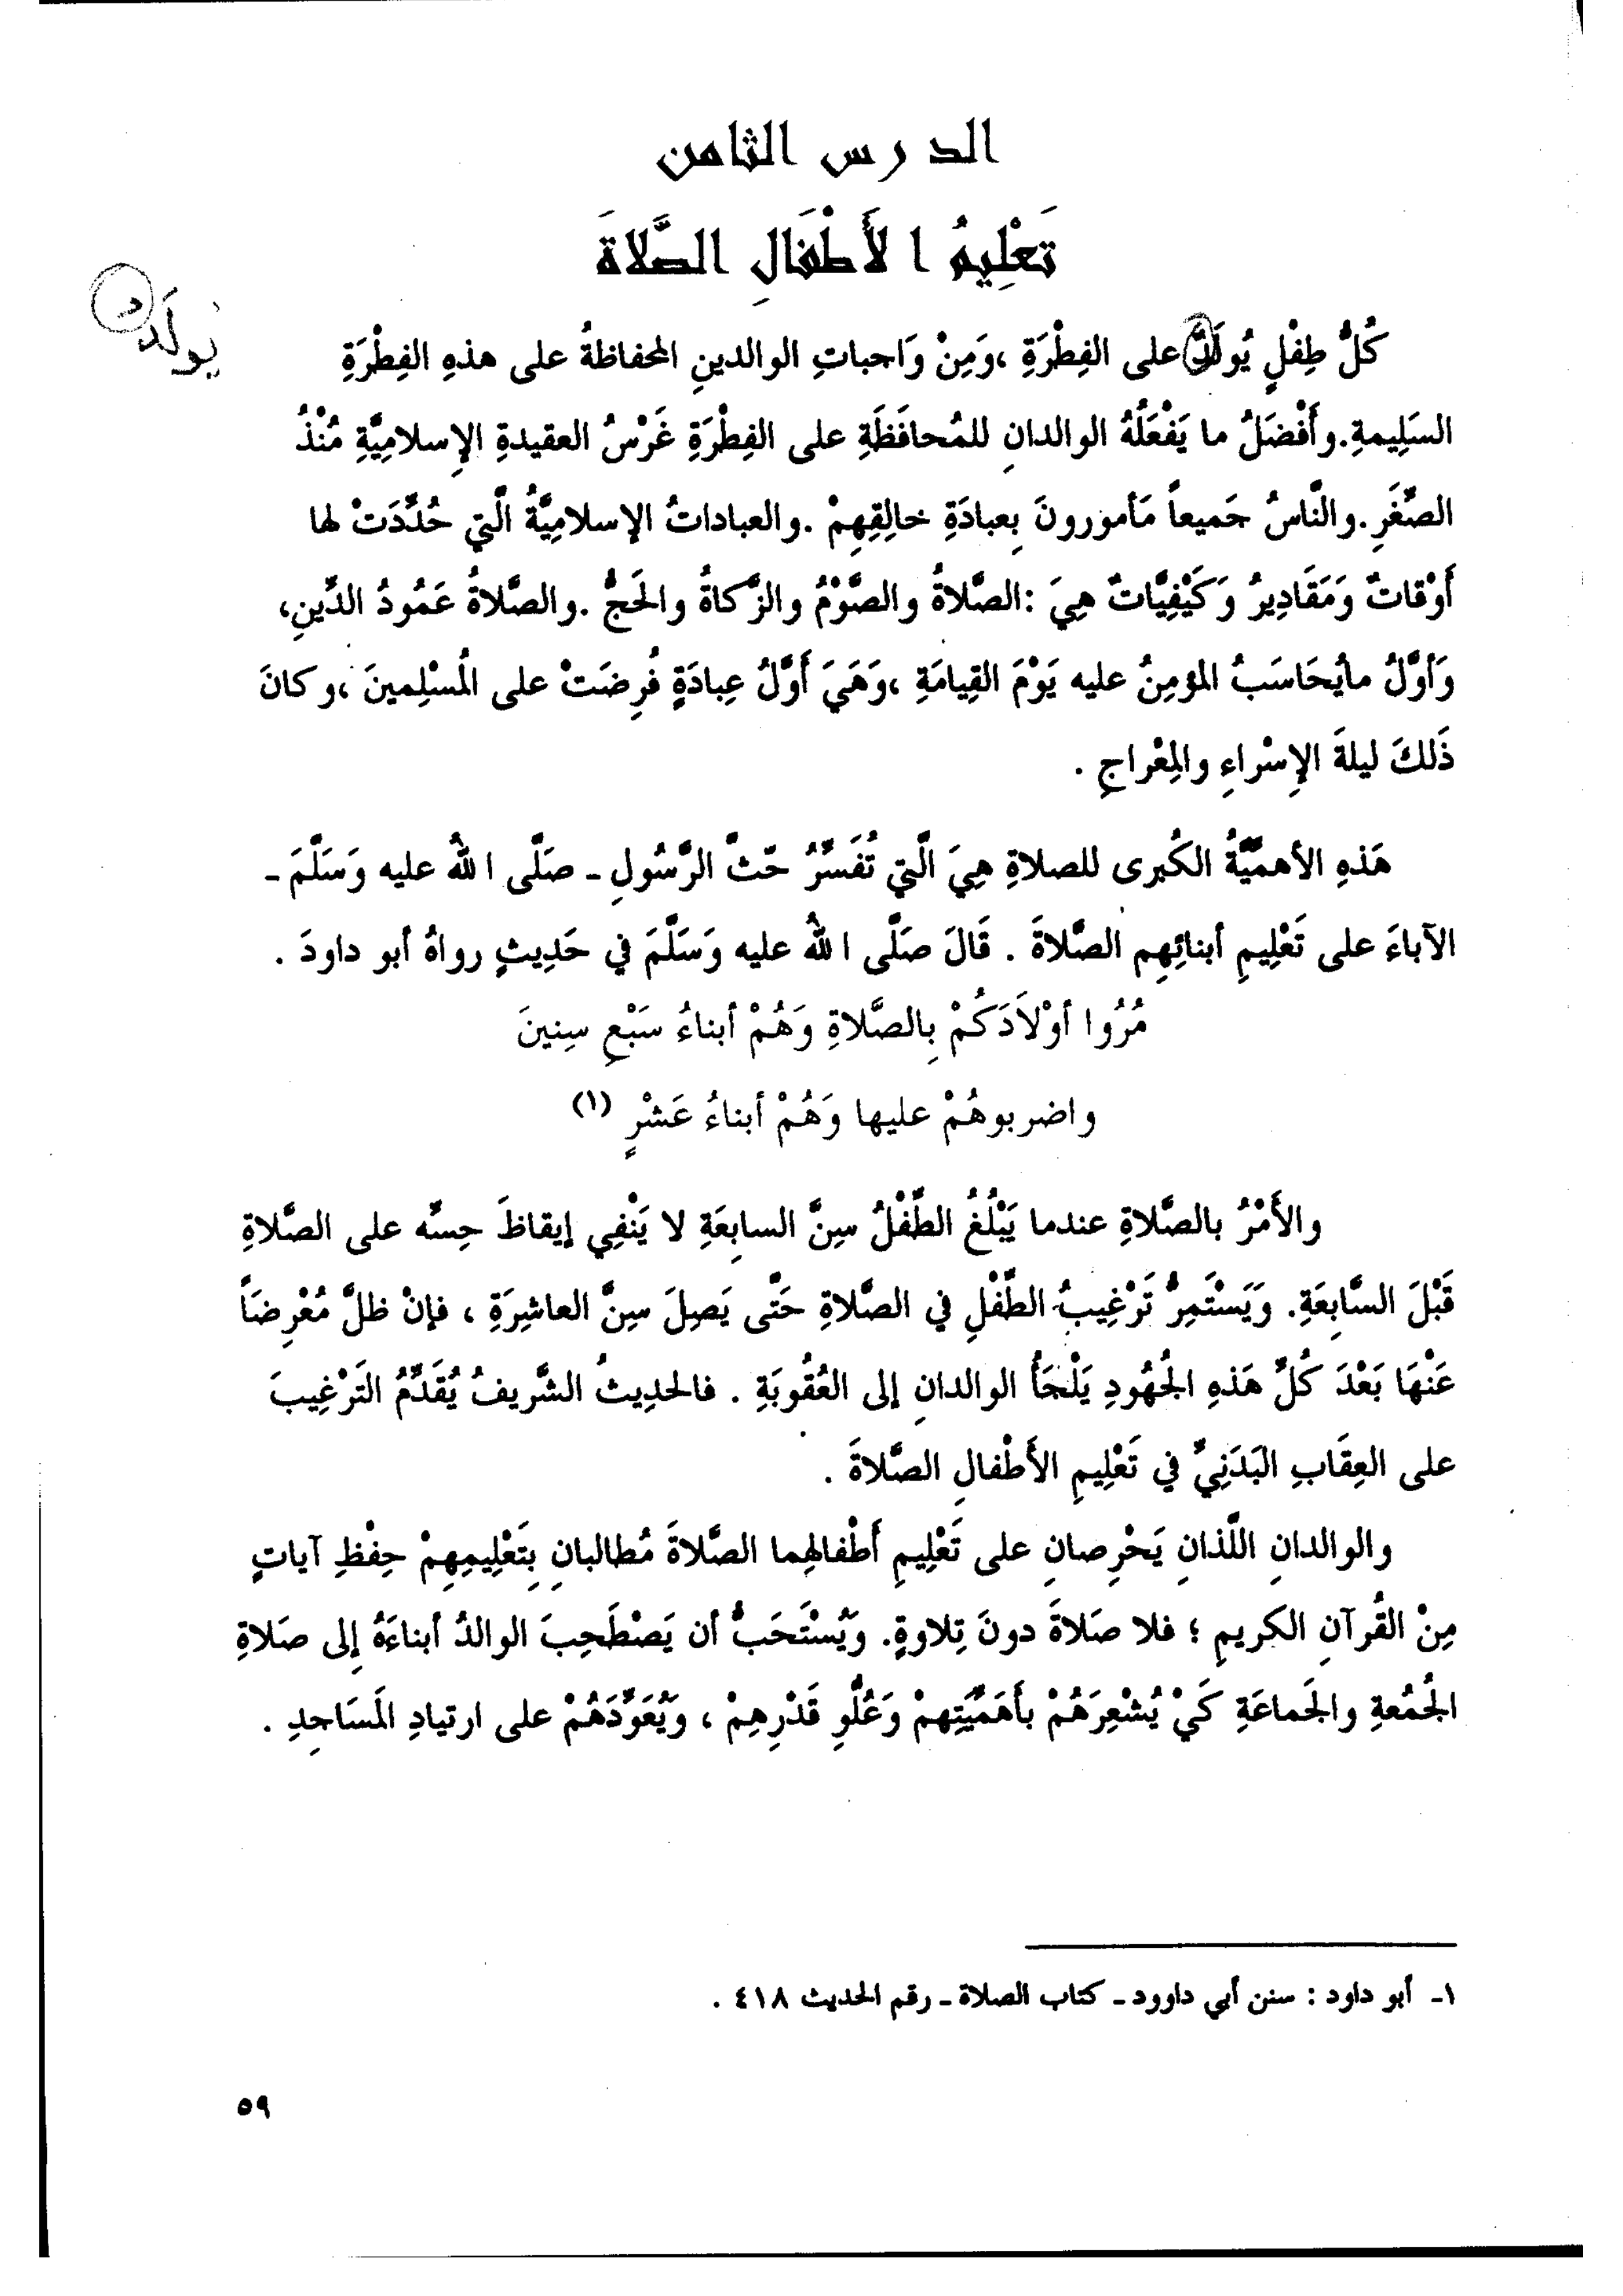 الدرس الثامن
تَعْلِيمُ الأَطْفَالِ الصَّلاةَ
كُلُّ طِفْلٍ يُولَدُ على الفِطْرَةِ ،وَمِنْ وَاجباتِ الوالدينِ المحفاظةُ على هذهِ الفِطرَةِ
يُولَدُ
السَلِيمةِ.وأَفْضَلُ ما يَفْعَلُهُ الوالدانِ للمُحافَظَةِ على الفِطْرَةِ غَرْسُ العقيدةِ الإسلاميَّةِ مُنْذُ
الصِّغَرِ.والنَّاسُ جَميعاً مَأمورونَ بِعبادَةِ خالِقِهِمْ .والعباداتُ الإسلاميَّةُ الَّتي حُدِّدَتْ لها
أَوْقاتٌ وَمَقَادِيرُ وَكَيْفِيَّاتٌ هِيَ :الصَّلاةُ والصَّوْمُ والزَّكاةُ والحَجُّ .والصَّلاةُ عَمُودُ الدِّينِ،
وَأوَّلُ مايُحَاسَبُ المؤمِنُ عليه يَوْمَ القِيامَةِ ،وَهَيَ أَوَّلُ عِبادَةٍ فُرِضَتْ على المُسْلِمينَ ،وكانَ
ذَلكَ ليلةَ الإسْراءِ والمِعْراجِ .
هَذهِ الأهميَّةُ الكُبرى للصلاةِ هِيَ الَّتي تُفَسِّرُ حَثَّ الرَّسُولِ ـ صَلَّى اللهُ عليه وَسَلَّمَ ـ
الآباءَ على تَعْلِيمِ أبنائِهِم الصَّلاةَ . قَالَ صَلَّى اللهُ عليه وَسَلَّمَ في حَدِيثٍ رواهُ أبو داودَ .
مُرُوا أوْلاَدَكُمْ بِالصَّلاةِ وَهُمْ أبناءُ سَبْعِ سِنينَ
واضربوهُمْ عليها وَهُمْ أبناءُ عَشْرٍ (١)
والأَمْرُ بالصَّلاةِ عندما يَبْلُغُ الطِّفْلُ سِنَّ السابِعَةِ لا يَنْفِي إيقاظَ حِسِّه على الصَّلاةِ
قَبْلَ السَّابِعَةِ. وَيَسْتَمِرُّ تَرْغِيبُ الطِّفْلِ في الصَّلاةِ حَتَّى يَصِلَ سِنَّ العاشِرَةِ ، فإنْ ظلَّ مُعْرِضَاً
عَنْهَا بَعْدَ كُلِّ هَذهِ الجُهُودِ يَلْجَأُ الوالدانِ إلى العُقُوبَةِ . فالحديثُ الشَّريفُ يُقَدِّمُ التَرْغِيبَ
على العِقَابِ البَدَنِيِّ في تَعْلِيمِ الأَطْفالِ الصَّلاةَ .
والوالدانِ اللَّذانِ يَحْرِصانِ على تَعْلِيمِ أَطْفالِهِما الصَّلاةَ مُطالبانِ بِتَعْلِيمِهِمْ حِفْظِ آياتٍ
مِنْ القُرآنِ الكريمِ ؛ فلا صَلاةَ دونَ تِلاوةٍ. وَيُسْتَحَبُّ أن يَصْطَحِبَ الوالدُ أبناءَهُ إلى صَلاةِ
الجُمُعةِ والجَماعَةِ كَيْ يُشْعِرَهُمْ بأَهَمِّيَتِهِمْ وَعُلُّوِ قَدْرِهِمْ ، وَيُعَوِّدَهُمْ على ارتيادِ المَسَاجِدِ .
١ـ أبو داود : سنن أبي داوود ـ كتاب الصلاة ـ رقم الحديث ٤١٨ .
٥٩